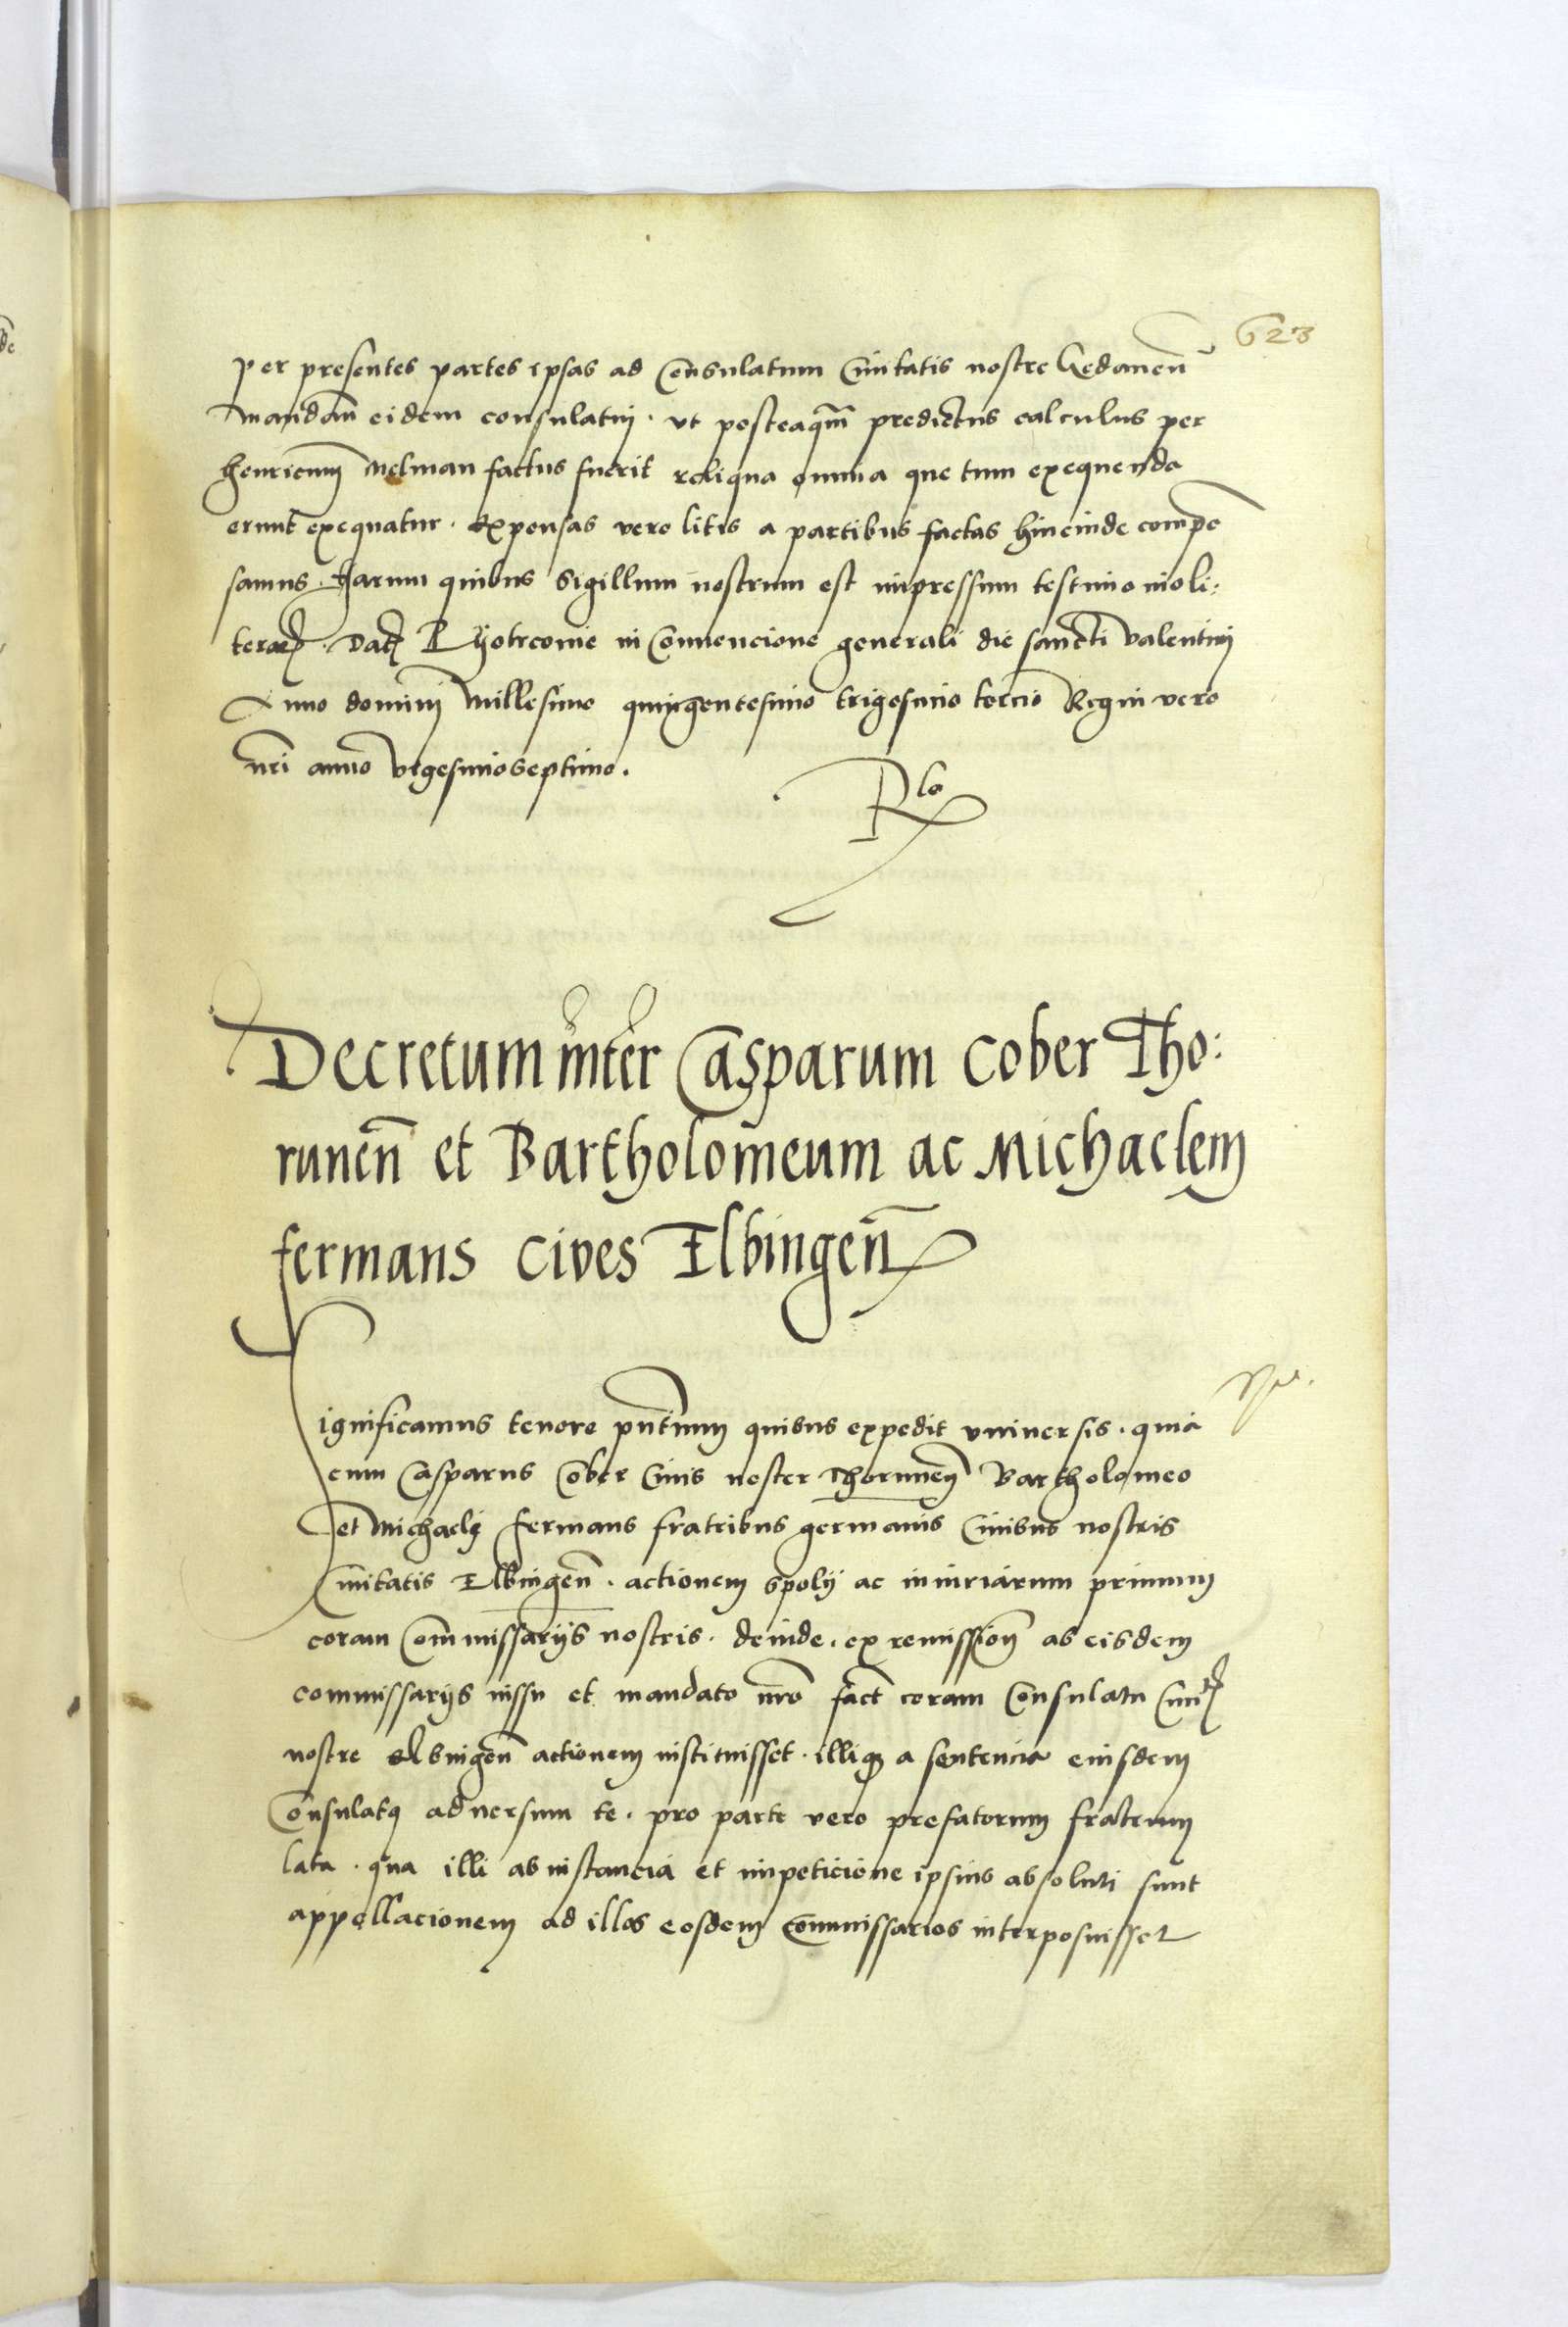 623
per presentes partes ipsas ad Consulatum Civitatis nostre Gedanen̄
mandam̄ eidem consulatuj. ut posteaqm̄ predictus calculus per
henricum Melman factus fuerit reliqua omnia que tum exequenda
erunt exequatur. Expensas vero litis a partibus factas hincinde compe
samus. Harum quibus Sigillum nostrum est impressum testimonio li:
terarꝝ. Datꝝ Pyotrconie in Convencione generali die sancti Valentini
Anno dominj Millesimo quingentesimo trigesimo tercio Regni vero
nr̄i anno vigesimoseptimo.
Rla
Decretum inter Casparum Cober Tho:
runen̄ et Bartholomeum ac Michaelem
fermans Cives Elbingen̄
Significamus tenore pn̄tium quibus expedit universis. quia
cum Casparus Cober Civis noster Thorunen̄ Bartholomeo
et Michaeli fermans fratribus germanis Civibus nostris
Civitatis Elbingen̄. actionem spolij ac iniuriarum primum
coram Commissarijs nostris. deinde. ex remission̄ ab eisdem
commissarijs iussu et mandato nr̄o fact̄ coram Consulatu Civitꝭ
nostre Elbingen̄ actionem instituisset. illiqꝫ a sentencia eiusdem
Consulatꝰ adversum te. pro parte vero prefatorum fratrum
lata. qua illi ab instancia et impeticione ipsius absoluti sunt
appellacionem ad illos eosdem Commissarios interposuisset